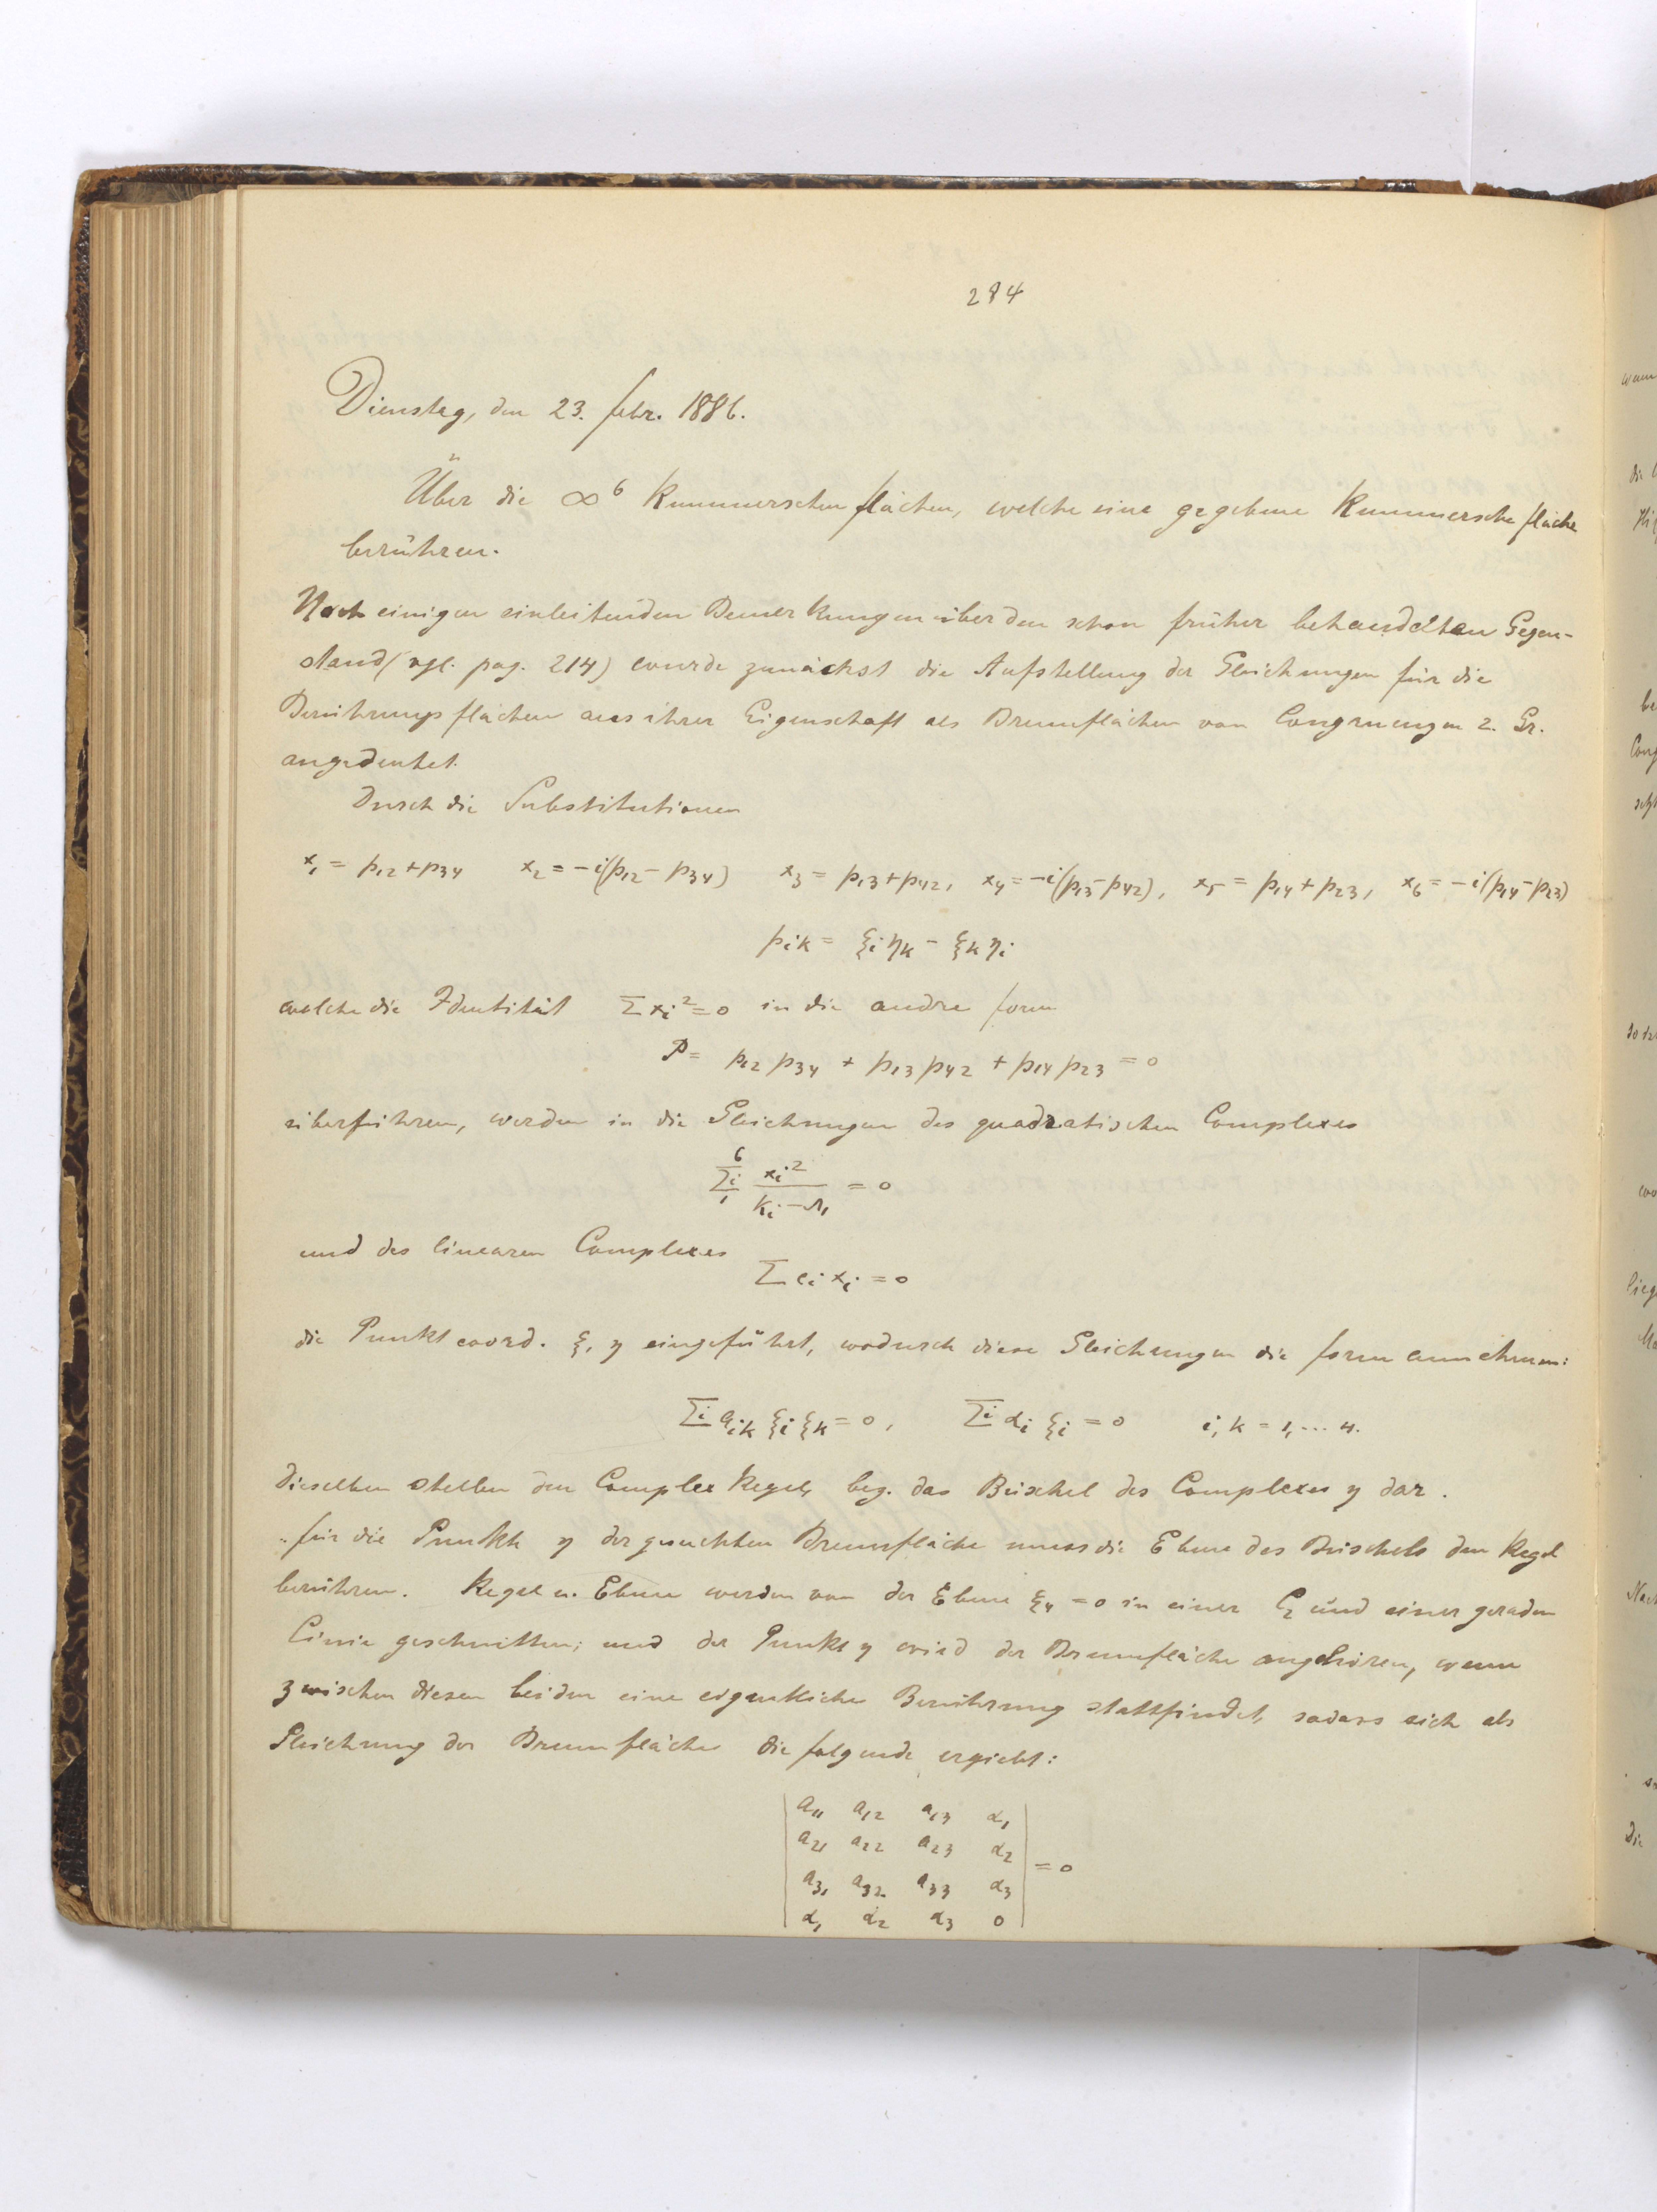 284
Dienstag, den 23. Febr. 1886.
Über die ∞⁶ Kummerschen Flächen, welche eine gegebene Kummersche Fläche
berühren.
Nach einigen einleitenden Bemerkungen über den schon früher behandelten Gegen-
stand (vgl. pag. 214) wurde zunächst die Aufstellung der Gleichungen für die
Berührungsflächen aus ihrer Eigenschaft als Brennflächen von Congruenzen 2. Gr.
angedeutet.
Durch die Substitutionen
x₁ = p₁₂ + p₃₄ x₂ = −i(p₁₂ − p₃₄) x₃ = p₁₃ + p₄₂, x₄ = −i(p₁₃ − p₄₂), x₅ = p₁₄ + p₂₃, x₆ = −i(p₁₄ − p₂₃)
pᵢₖ = ξᵢ ηₖ − ξₖ ηᵢ
welche die Identität Σxᵢ² = 0 in die andre Form
P = p₁₂ p₃₄ + p₁₃ p₄₂ + p₁₄ p₂₃ = 0
überführen, werden in die Gleichungen des quadratischen Complexes
⁶Σᵢ₁ xᵢ² / (kᵢ − λ₁) = 0
und des linearen Complexes
Σ eᵢ xᵢ = 0
die Punktcoord. ξ, η eingeführt, wodurch diese Gleichungen die Form annehmen:
Σⁱ aᵢₖ ξᵢ ξₖ = 0, Σⁱ αᵢ ξᵢ = 0 i, k = 1, ... 4.
Dieselben stellen den Complexkegel, bez. das Büschel des Complexes η dar.
Für die Punkte η der gesuchten Brennfläche muss die Ebene des Büschels den Kegel
berühren. Kegel u. Ebene werden von der Ebene ξ₄ = 0 in einer C₂ und einer geraden
Linie geschnitten; und der Punkt η wird der Brennfläche angehören, wenn
zwischen diesen beiden eine eigentliche Berührung stattfindet, sodass sich als
Gleichung der Brennfläche die folgende ergiebt:
| a₁₁ a₁₂ a₁₃ α₁ |
| a₂₁ a₂₂ a₂₃ α₂ | = 0
| a₃₁ a₃₂ a₃₃ α₃ |
| α₁ α₂ α₃ 0 |